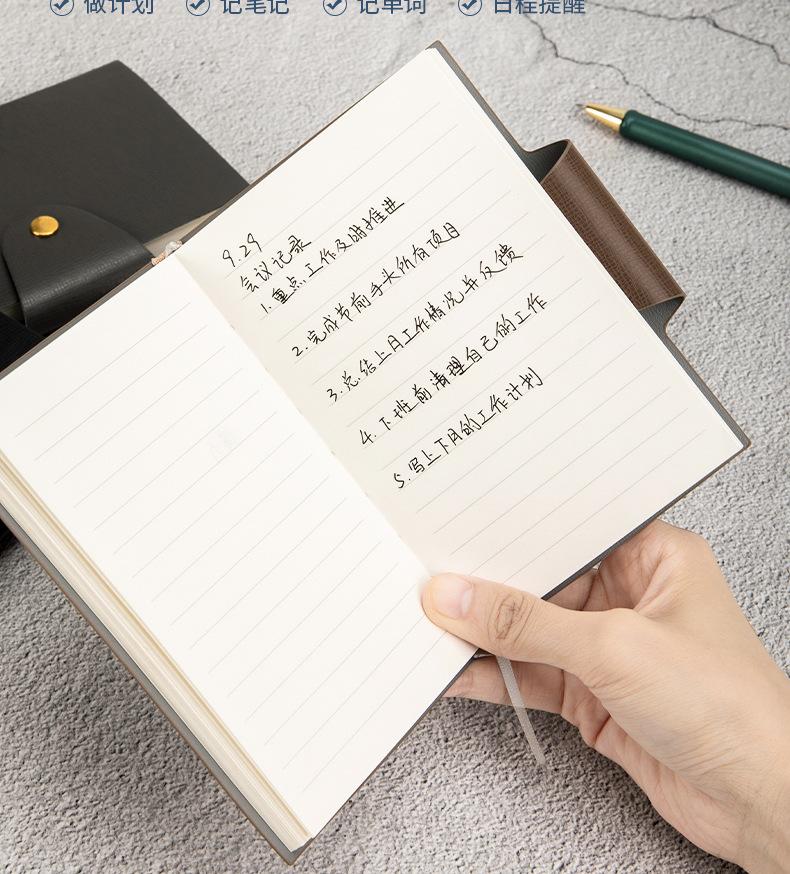 做计划 记笔记 记单词 日程提醒
9.29
会议记录
1.重点工作及时推进
2.完成节前手头所有项目
3.总结上月工作情况并反馈
4.下班前清理自己的工作
5.写上下月的工作计划